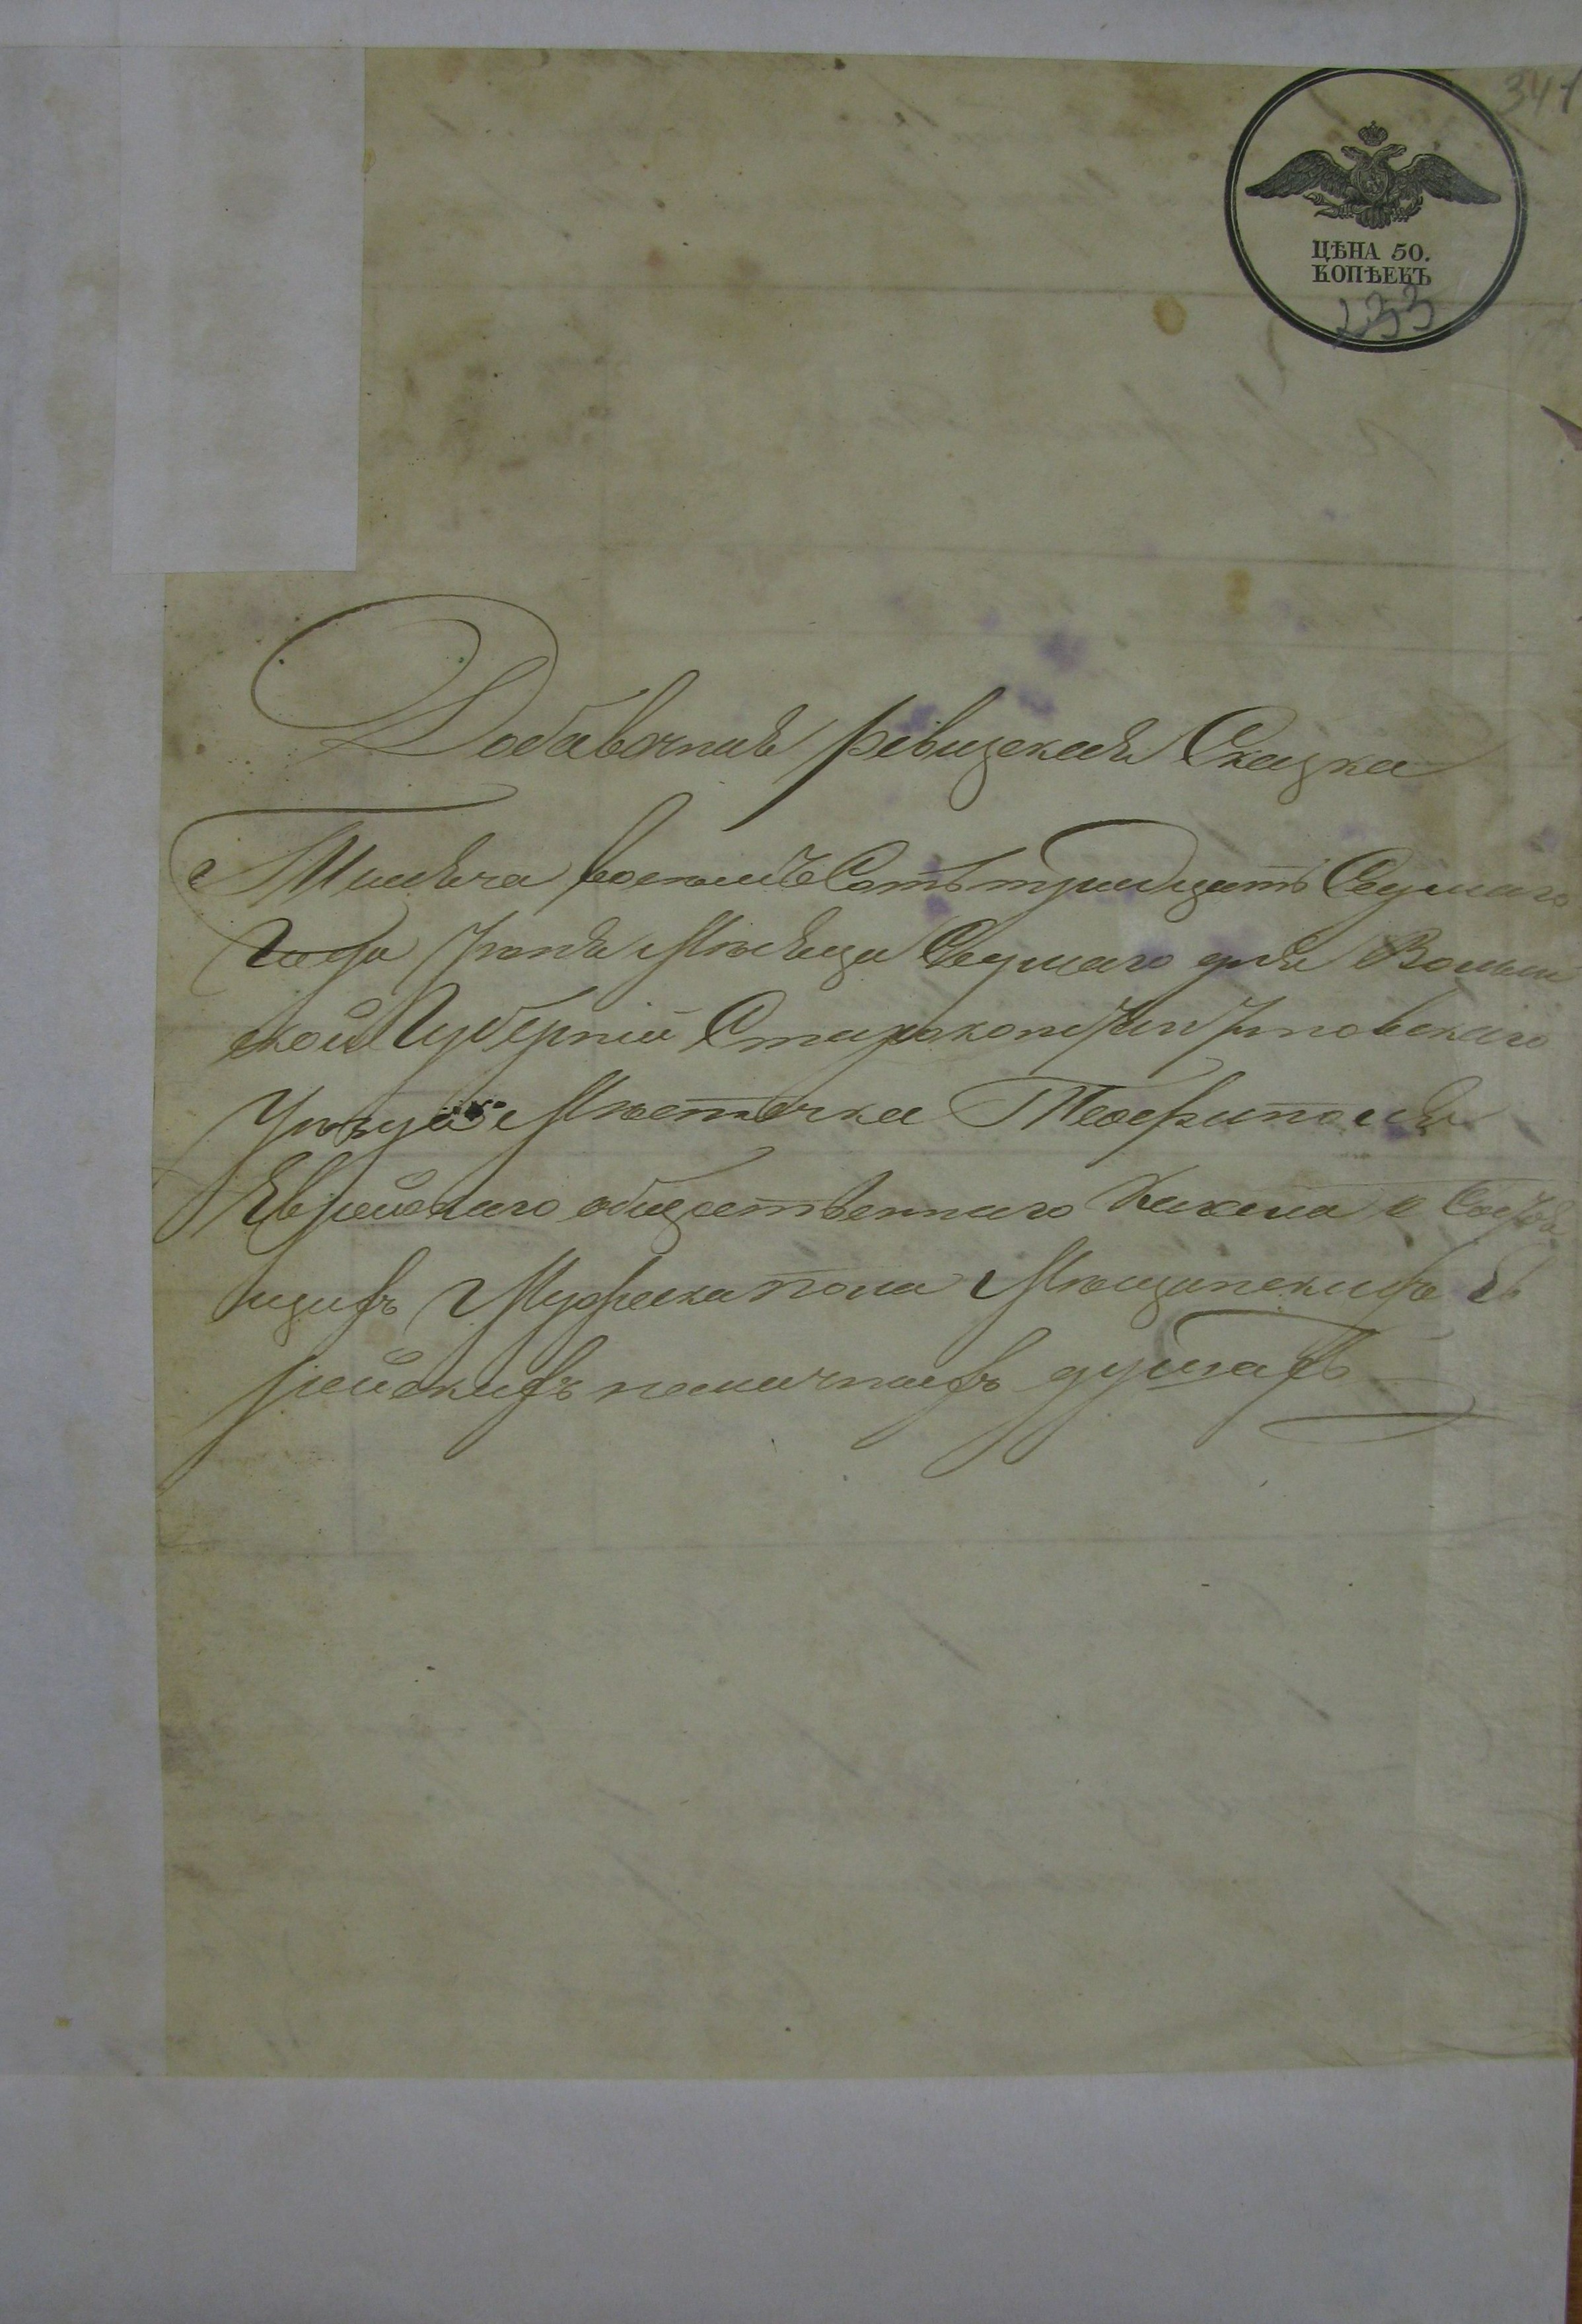 341
ЦѢНА 50.
КОПѢЕКЪ
233
Добавочная ревизская Сказка
Тысяча восемьСотъ тридцать Седмаго
Года Іюня Мѣсяца Седмаго дня Волын
ской Губерніи Староконстантиновскаго
Уѣзда Мѣстечка Теофиполя
Еврейскаго общественнаго Кагала о Состоя
щихъ Мужеска пола Мѣщанскихъ Ев
рейскихъ наличныхъ душахъ